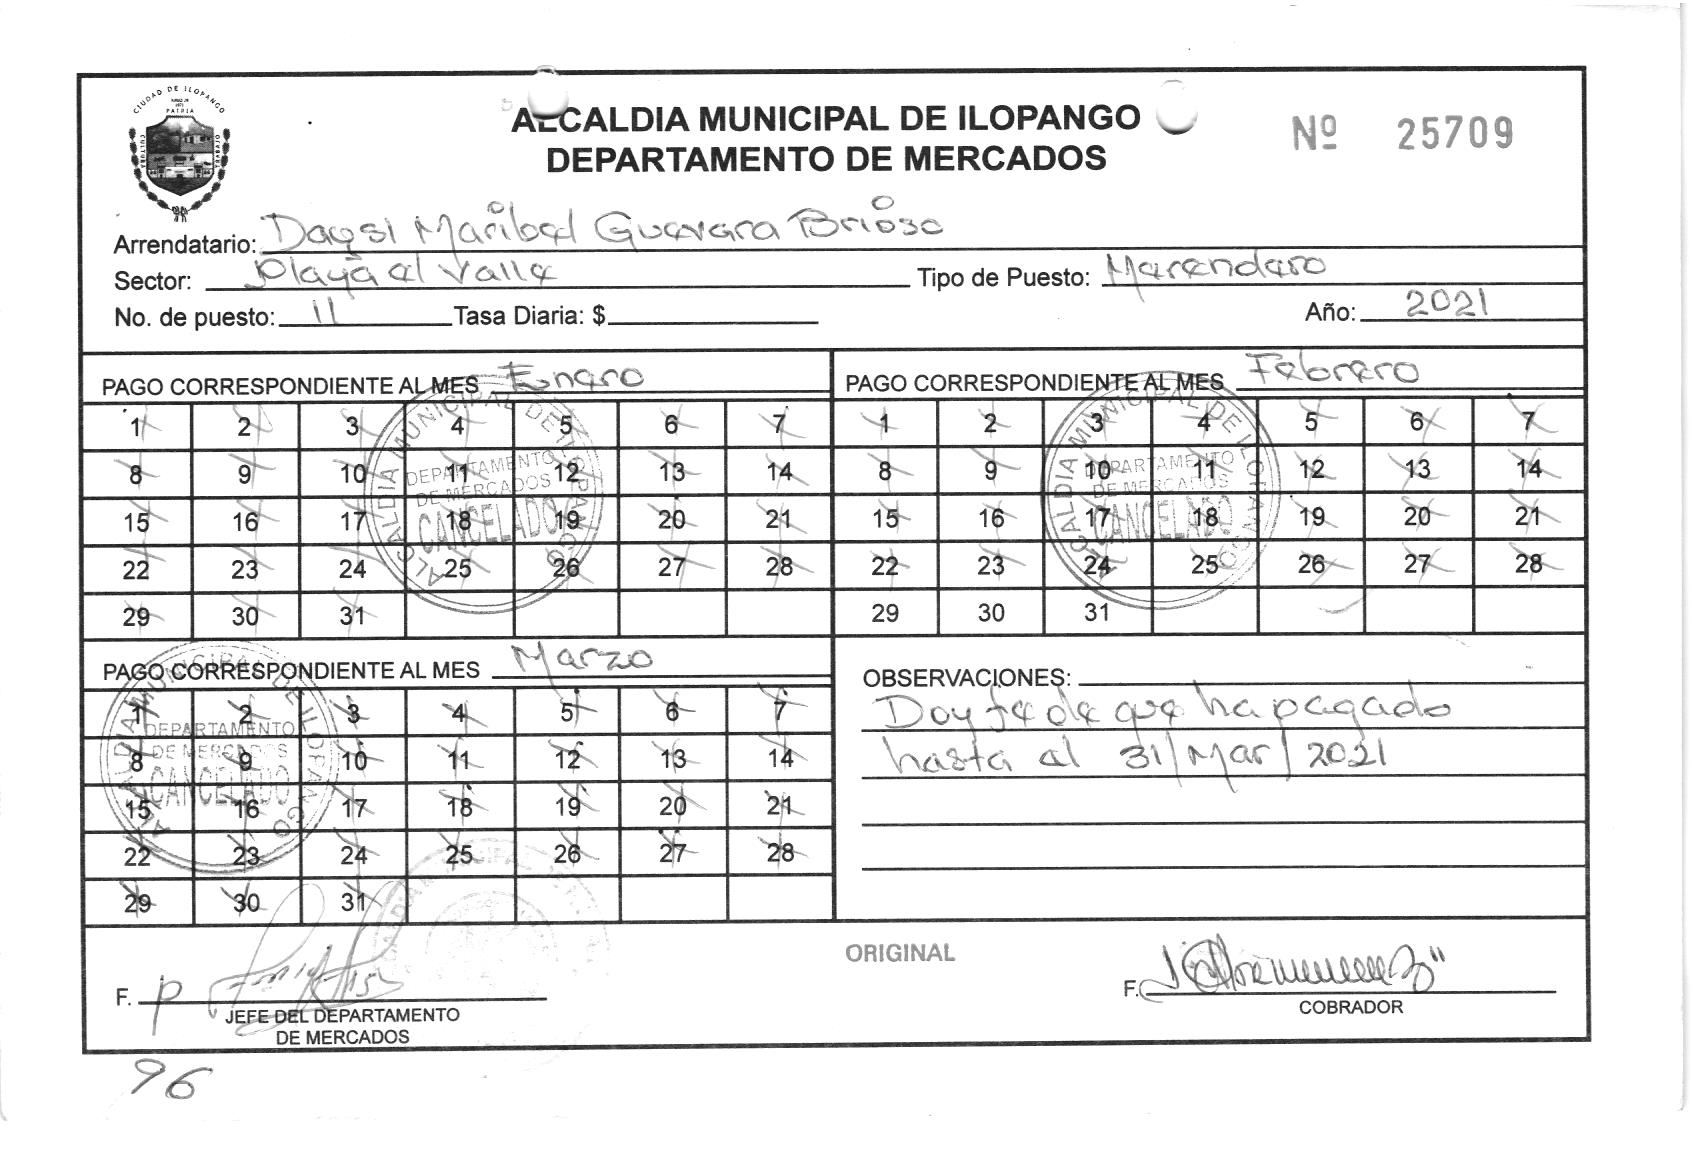 CIUDAD DE ILOPANGO
PATRIA
CULTURA
ALCALDIA MUNICIPAL DE ILOPANGO
DEPARTAMENTO DE MERCADOS
Nº 25709
Arrendatario: Daysi Maribel Guevara Brioso
Sector: playa el valle Tipo de Puesto: Merendero
No. de puesto: 11 Tasa Diaria: $ Año: 2021
PAGO CORRESPONDIENTE AL MES Enero
1 2 3 4 5 6 7
8 9 10 11 12 13 14
15 16 17 18 19 20 21
22 23 24 25 26 27 28
29 30 31
ALCALDIA MUNICIPAL DE ILOPANGO
DEPARTAMENTO
DE MERCADOS
CANCELADO
PAGO CORRESPONDIENTE AL MES Febrero
1 2 3 4 5 6 7
8 9 10 11 12 13 14
15 16 17 18 19 20 21
22 23 24 25 26 27 28
29 30 31
ALCALDIA MUNICIPAL DE ILOPANGO
DEPARTAMENTO
DE MERCADOS
CANCELADO
PAGO CORRESPONDIENTE AL MES Marzo
1 2 3 4 5 6 7
8 9 10 11 12 13 14
15 16 17 18 19 20 21
22 23 24 25 26 27 28
29 30 31
ALCALDIA MUNICIPAL DE ILOPANGO
DEPARTAMENTO
DE MERCADOS
CANCELADO
OBSERVACIONES:
Doy fe de que ha pagado
hasta el 31/Mar/2021
ORIGINAL
F. p
JEFE DEL DEPARTAMENTO
DE MERCADOS
F.
COBRADOR
96